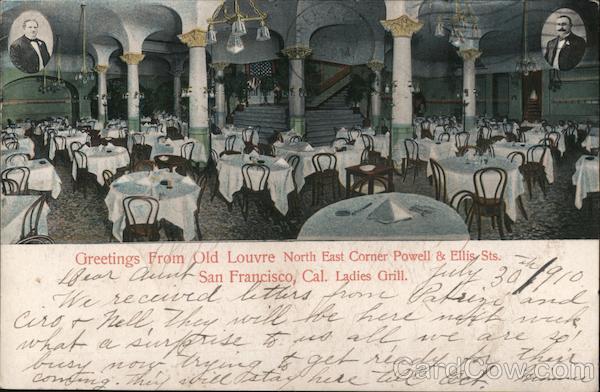 Greetings From Old Louvre North East Corner Powell & Ellis Sts.
San Francisco, Cal. Ladies Grill.
Dear Aunt July 30th/1910
We received letters from and
Ciro & Nell They will be here next week
what a surprise to us all we are so
busy now trying to get ready for their
coming. they will stay here till Oct
CardCow.com